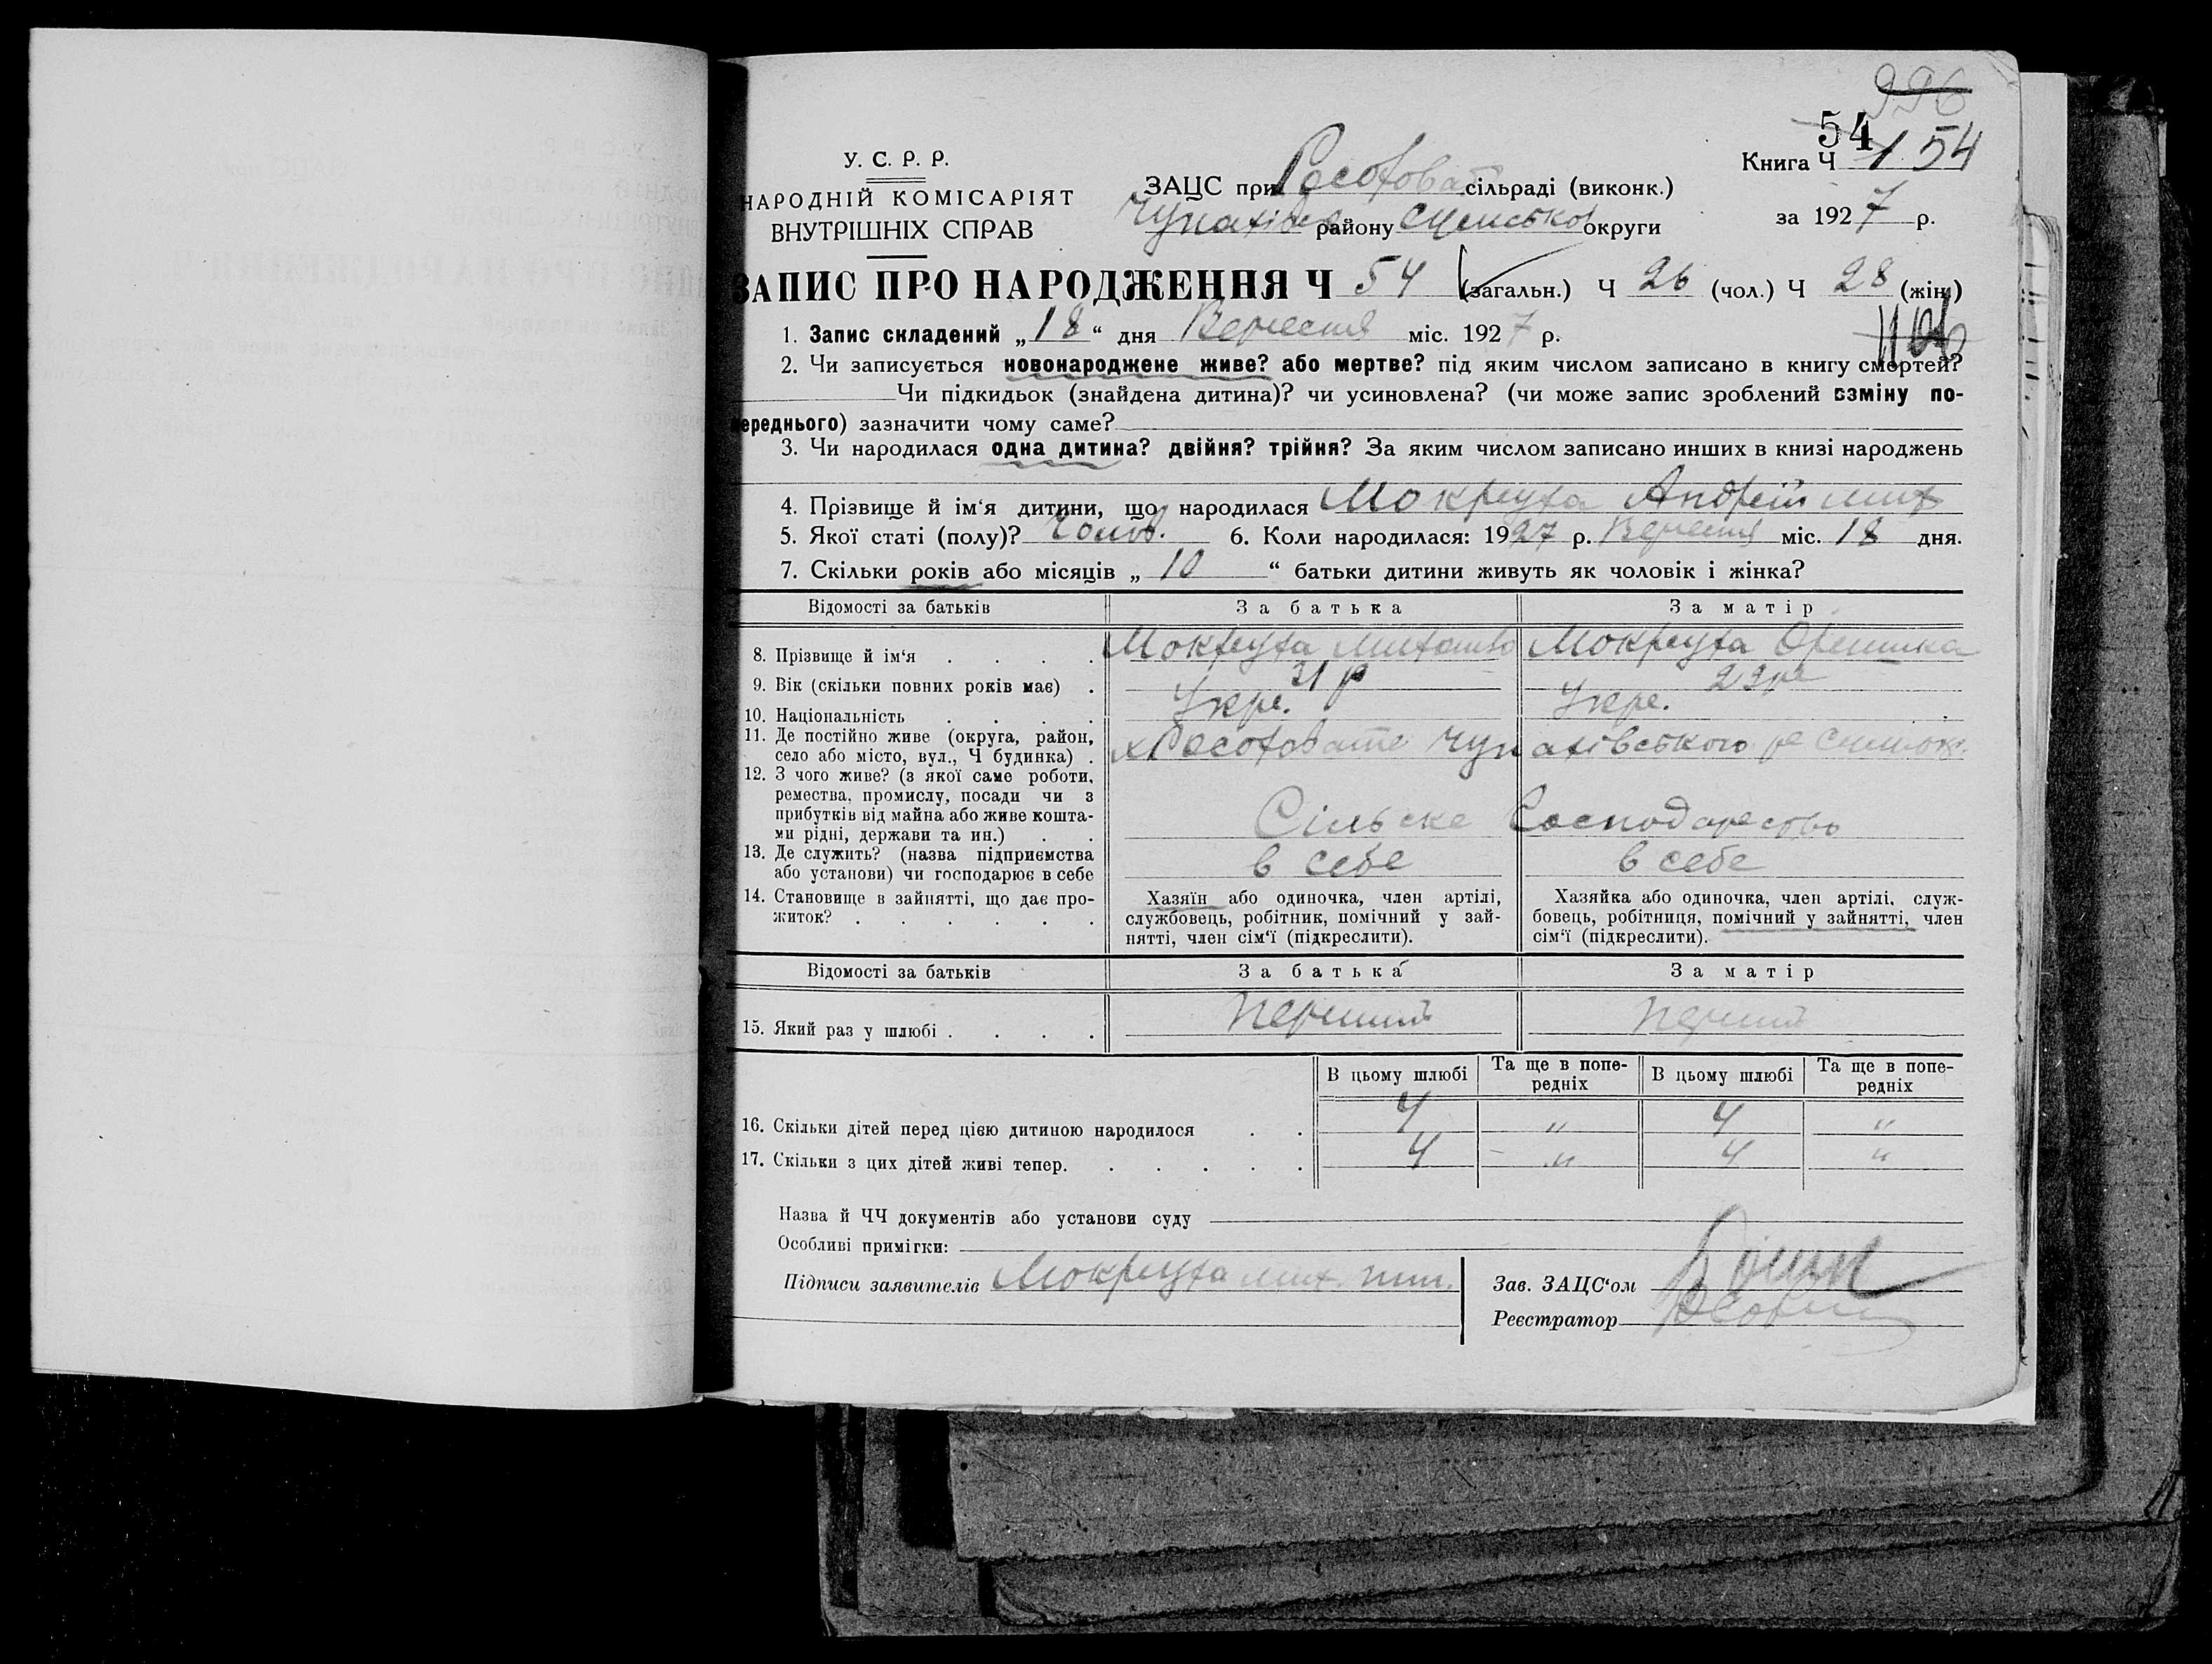 996
54
У. С. Р. Р.
Книга Ч 1 54
ЗАЦС при Росоховат сільраді (виконк.)
НАРОДНІЙ КОМІСАРІЯТ
Чупахівсь району Сумсько округи
за 1927 р.
ВНУТРІШНІХ СПРАВ
ЗАПИС ПРО НАРОДЖЕННЯ Ч 54 (загальн.) Ч 26 (чол.) Ч 28 (жін)
1. Запис складений „18“ дня Вересня міс. 1927 р.
2. Чи записується новонароджене живе? або мертве? під яким числом записано в книгу смертей?
Чи підкидьок (знайдена дитина)? чи усиновлена? (чи може запис зроблений взміну по-
переднього) зазначити чому саме?
3. Чи народилася одна дитина? двійня? трійня? За яким числом записано инших в книзі народжень
4. Прізвище й ім‘я дитини, що народилася Мокреуха Андрій мих
5. Якої статі (полу)? Чолов. 6. Коли народилася: 1927 р. Вересня міс. 18 дня.
7. Скільки років або місяців „ 10 “ батьки дитини живуть як чоловік і жінка?
Відомості за батьків За батька За матір
8. Прізвище й ім‘я . . . . Мокреуха Михайло Мокреуха
9. Вік (скільки повних років має) . 31 р
10. Національність . . . . Укре. Укре.
11. Де постійно живе (округа, район,
село або місто, вул., Ч будинка) . х Росоховате Чупахівського
12. З чого живе? (з якої саме роботи,
ремества, промислу, посади чи з
прибутків від майна або живе кошта-
ми рідні, держави та ин.) . . Сільське Господарство
13. Де служить? (назва підприємства
або установи) чи господарює в себе в себе в себе
14. Становище в зайнятті, що дає про-
житок? . . . . . .
Хазяїн або одиночка, член артілі,
службовець, робітник, помічний у зай-
нятті, член сім‘ї (підкреслити).
Хазяйка або одиночка, член артілі, служ-
бовець, робітниця, помічний у зайнятті, член
сім‘ї (підкреслити).
Відомості за батьків За батька За матір
15. Який раз у шлюбі . . . . Перший Перший
В цьому шлюбі Та ще в попе-
редніх В цьому шлюбі Та ще в попе-
редніх
16. Скільки дітей перед цією дитиною народилося . . 4 „ 4 „
17. Скільки з цих дітей живі тепер. . . . . . 4 „ 4 „
Назва й ЧЧ документів або установи суду
Особливі примігки:
Підписи заявителів Мокреуха мих.
Зав. ЗАЦС‘ом
Реєстратор